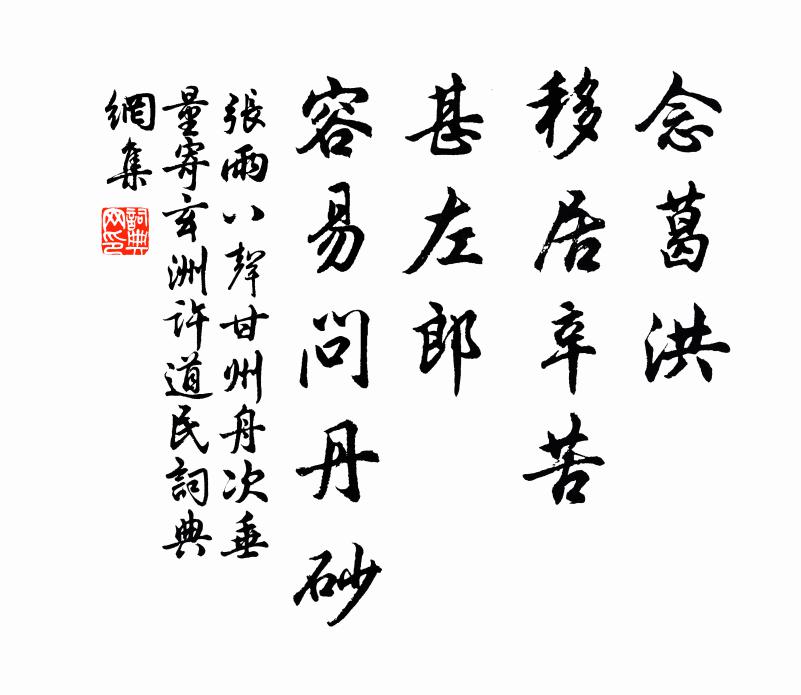 念葛洪
移居辛苦
甚左郎
容易問丹砂
張雨八聲甘州舟次垂
量寄玄洲許道民詞典
網集
詞典网印